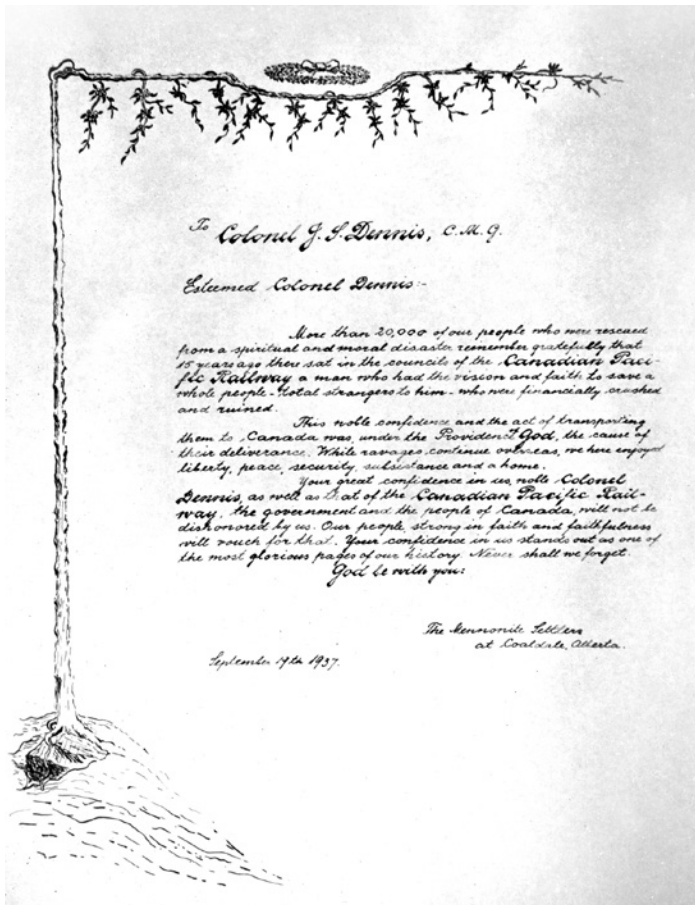 To Colonel J. S. Dennis, C. M. G.
Esteemed Colonel Dennis:-
More than 20,000 of our people who were rescued
from a spiritual and moral disaster remember gratefully that
15 years ago there sat in the councils of the Canadian Paci-
fic Railway a man who had the vision and faith to save a
whole people - total strangers to him - who were financially crushed
and ruined.
This noble confidence and the act of transporting
them to Canada was, under the Providence of God, the cause of
their deliverance. While ravages continue overseas, we here enjoyed
liberty, peace, security, subsistance and a home.
Your great confidence in us, noble Colonel
Dennis, as well as that of the Canadian Pacific Rail-
way, the government and the people of Canada, will not be
dishonored by us. Our people, strong in faith and faithfulness
will vouch for that. Your confidence in us stands out as one of
the most glorious pages of our history. Never shall we forget.
God be with you:
The Mennonite Settlers
at Coaldale, Alberta.
September 19th 1937.